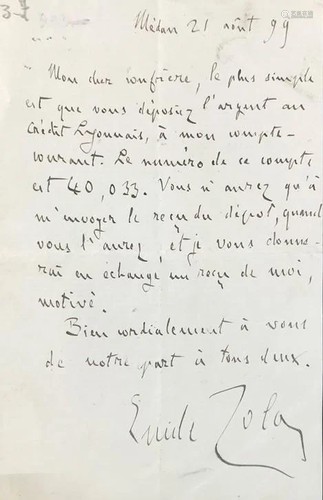 37
Médan 21 août 99
Mon cher confrère, le plus simple
est que vous déposiez l'argent au
Crédit Lyonnais, à mon compte-
courant. Le numéro de ce compte
est 40,033. Vous n'aurez qu'à
m'envoyer le reçu du dépôt, quand
vous l'aurez, et je vous donne-
rai en échange un reçu de moi,
motivé.
Bien cordialement à vous
de notre part à tous deux.
Emile Zola